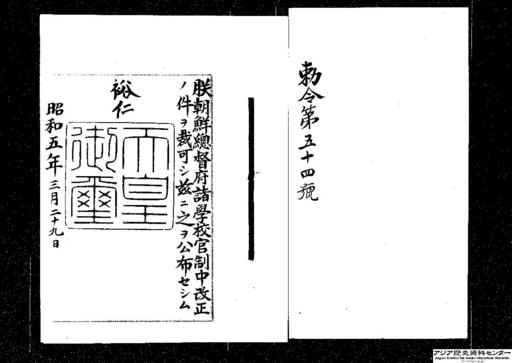 勅令第五十四號
朕朝鮮總督府諸學校官制中改正
ノ件ヲ裁可シ茲ニ之ヲ公布セシム
裕仁
天皇御璽
昭和五年三月二十九日
アジア歴史資料センター
Japan Center for Asian Historical Records